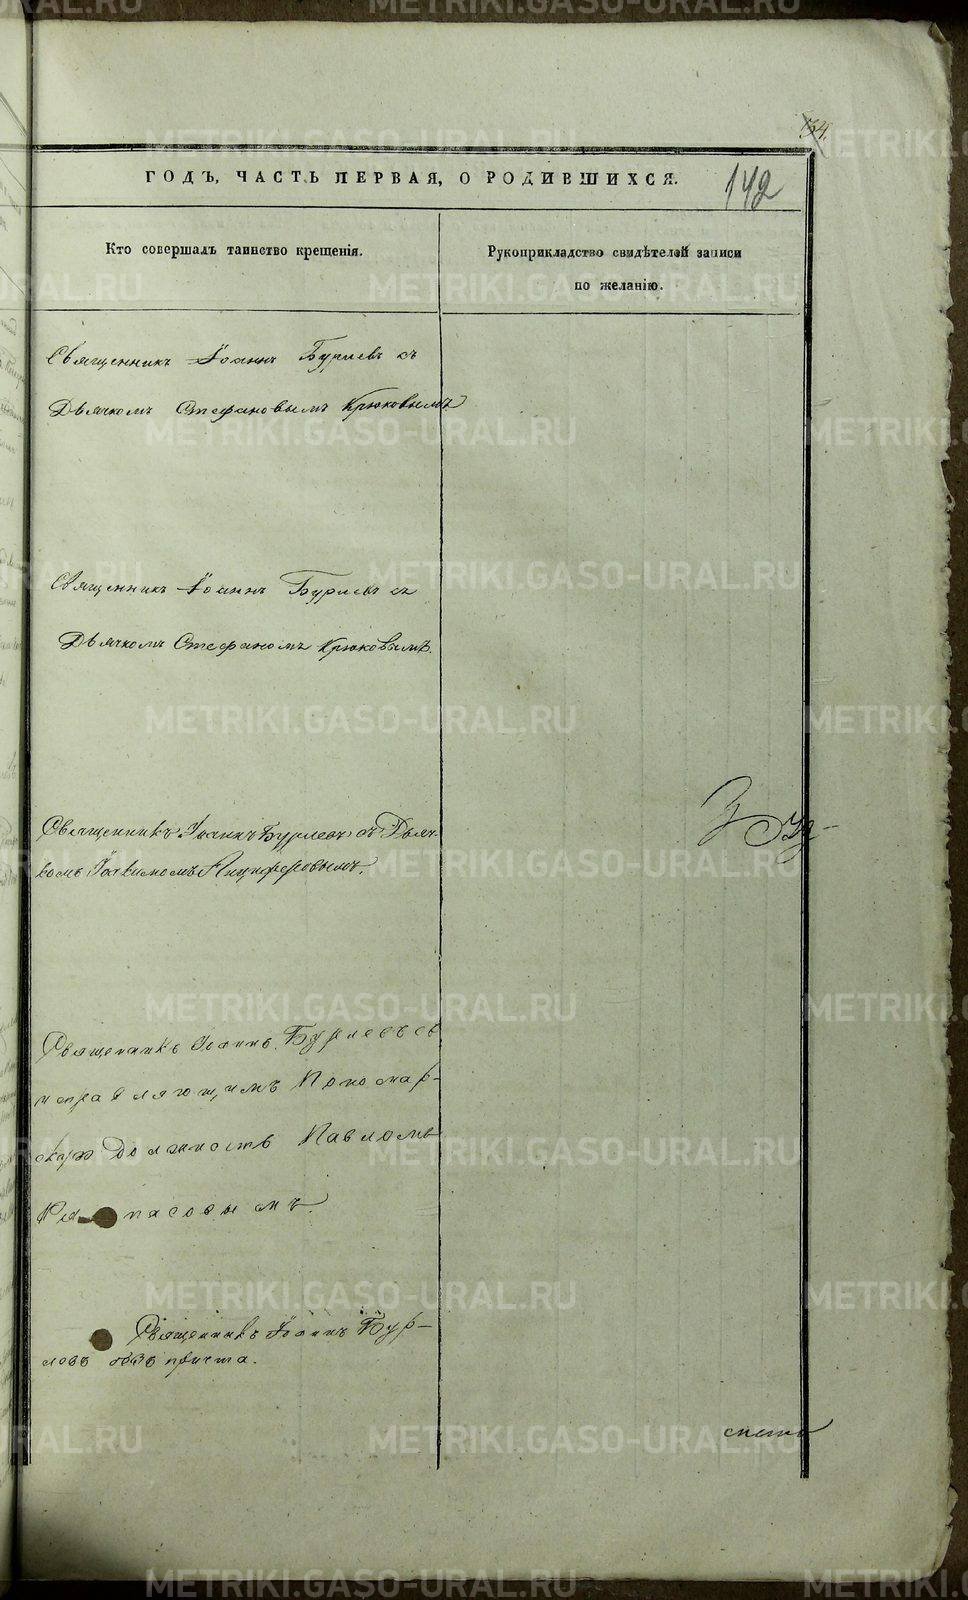 134.
ГОДЪ, ЧАСТЬ ПЕРВАЯ, О РОДИВШИХСЯ.
142
Кто совершалъ таинство крещенія.
Рукоприкладство свидѣтелей записи
по желанію.
Священникъ Іоаннъ Бурлевъ съ
Дьячкомъ Стефановымъ Крюковымъ
Священникъ Іоаннъ Бурлевъ съ
Дьячкомъ Стефаномъ Крюковымъ.
Священникъ Іоаннъ Бурлевъ съ Дьяч-
комъ Іоакимомъ Анциферовымъ.
Священникъ Іоаннъ Бурлевъ съ
исправляющимъ Пономар-
скую должность Павломъ
Священникъ Іоаннъ Бур-
левъ безъ причта.
METRIKI.GASO-URAL.RU